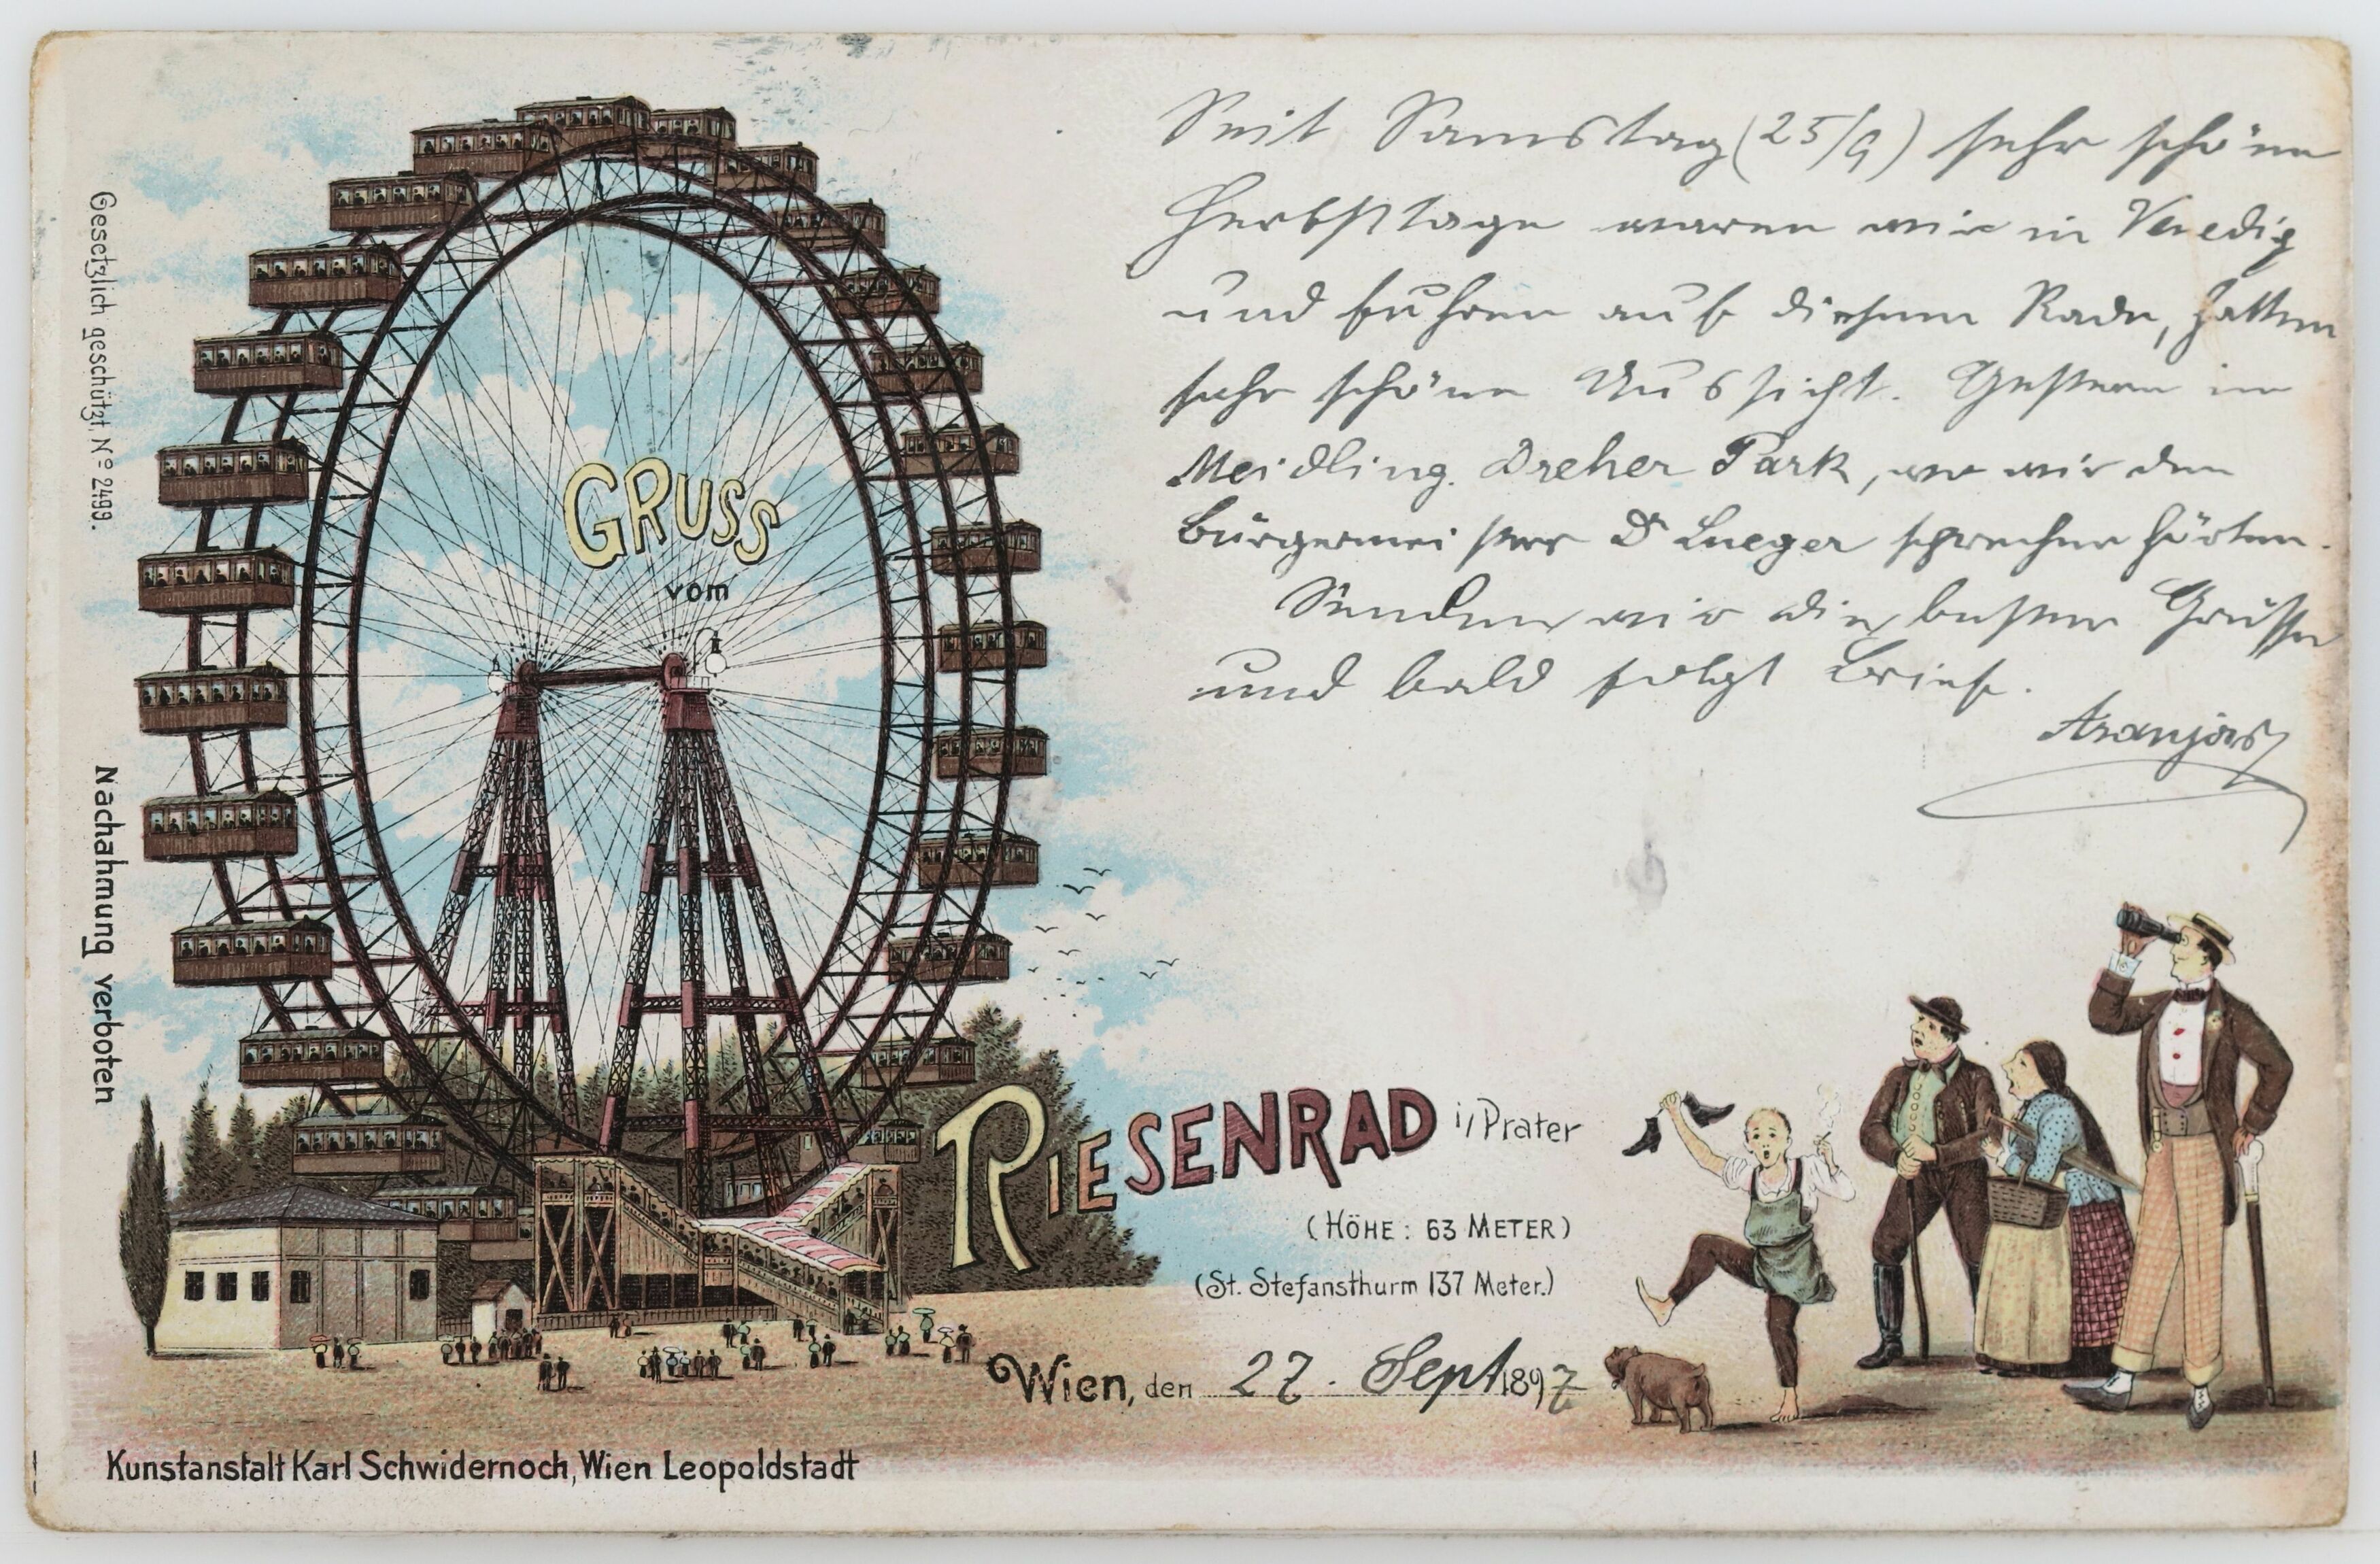 Seit Samstag (25/9) sehr schöne
Herbsttage waren wir in Venedig
und fuhren auf diesem Rade, hatten
sehr schöne Aussicht. Gestern in
Meidling. Dreher Park, wo wir den
Bürgermeister Dr Lueger sprechen hörten.
Senden wir die besten Grüsse
und bald folgt Brief.
GRUSS
vom
RIESENRAD i/Prater
(HÖHE: 63 METER)
(St. Stefansthurm 137 Meter.)
Wien, den 27. Sept 1897
Gesetzlich geschützt, Nº 2499.
Nachahmung verboten
Kunstanstalt Karl Schwidernoch, Wien Leopoldstadt